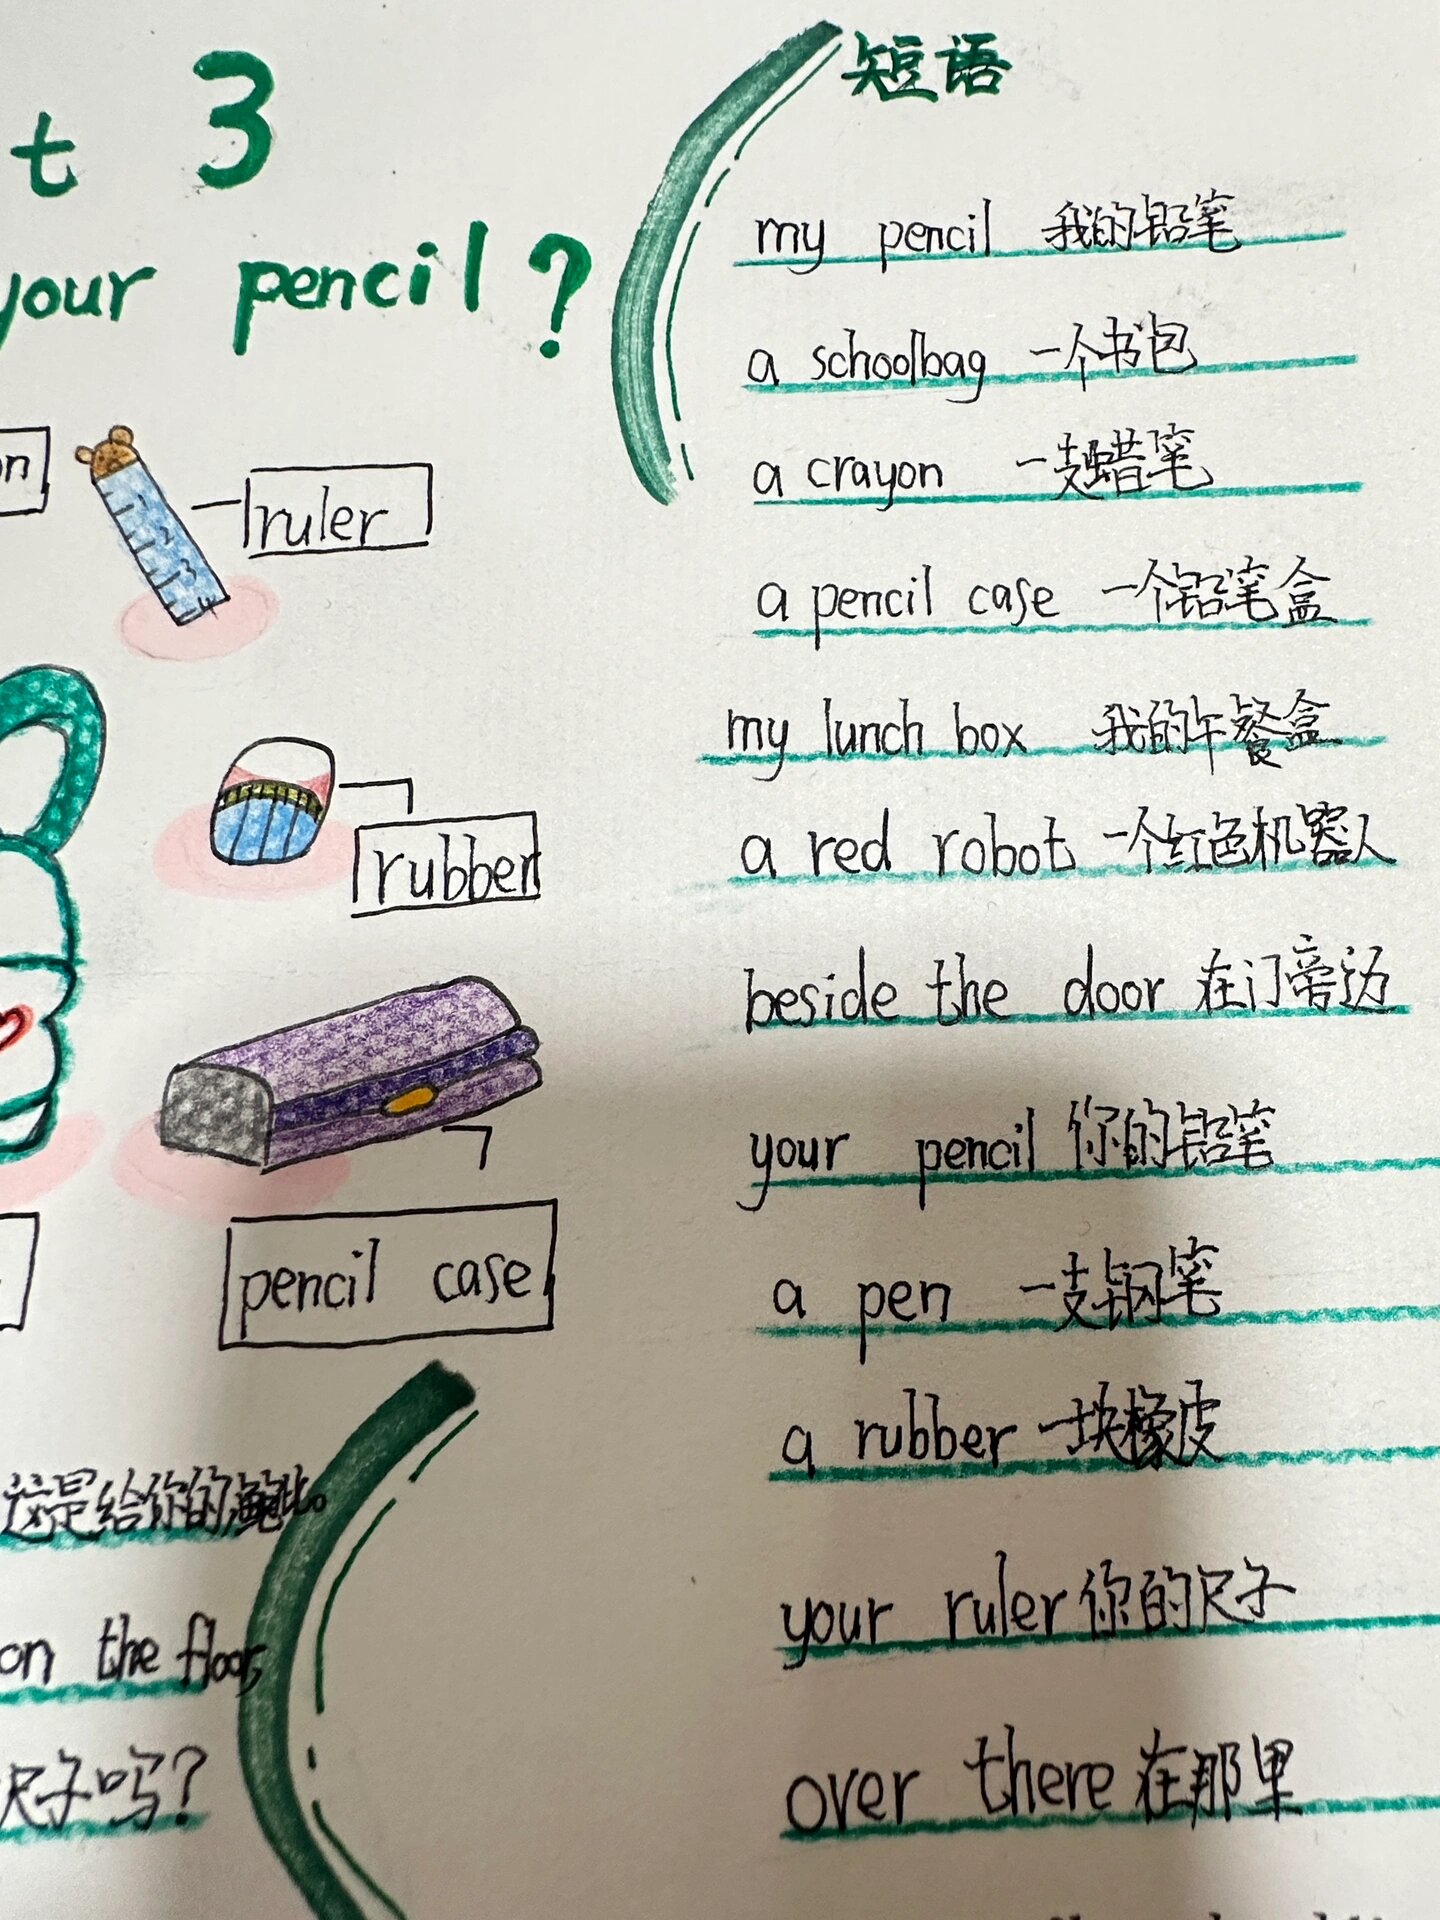 t 3
your pencil?
on
ruler
rubber
pencil case
这是给你的
on the floor,
尺子吗?
短语
my pencil 我的铅笔
a schoolbag 一个书包
a crayon 一支蜡笔
a pencil case 一个铅笔盒
my lunch box 我的午餐盒
a red robot 一个红色机器人
beside the door 在门旁边
your pencil 你的铅笔
a pen 一支钢笔
a rubber 一块橡皮
your ruler 你的尺子
over there 在那里